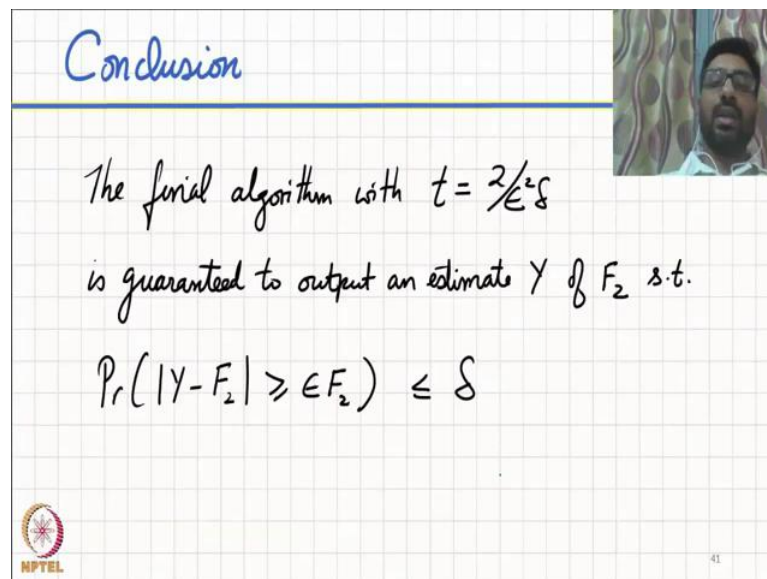 Conclusion
The final algorithm with t = 2/ϵ²δ
is guaranteed to output an estimate Y of F₂ s.t.
Pr(|Y-F₂| ⩾ ϵF₂) ≤ δ
NPTEL
41